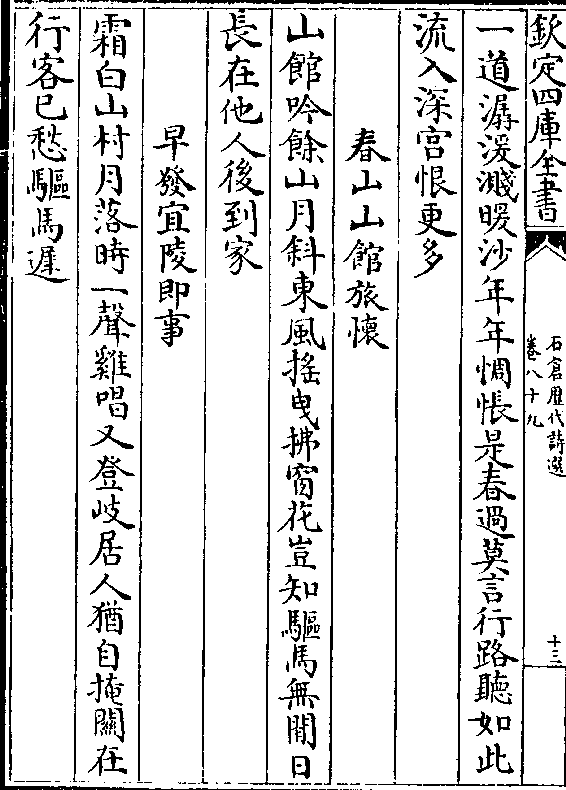 欽定四庫全書
石倉歷代詩選
卷八十九
十三
一道潺湲濺暖沙年年惆悵是春過莫言行路聽如此
流入深宫恨更多
春山山館旅懷
山館吟餘山月斜東風搖曳拂窗花豈知驅馬無閒日
長在他人後到家
早發宜陵即事
霜白山村月落時一聲雞唱又登岐居人猶自掩關在
行客已愁驅馬遲